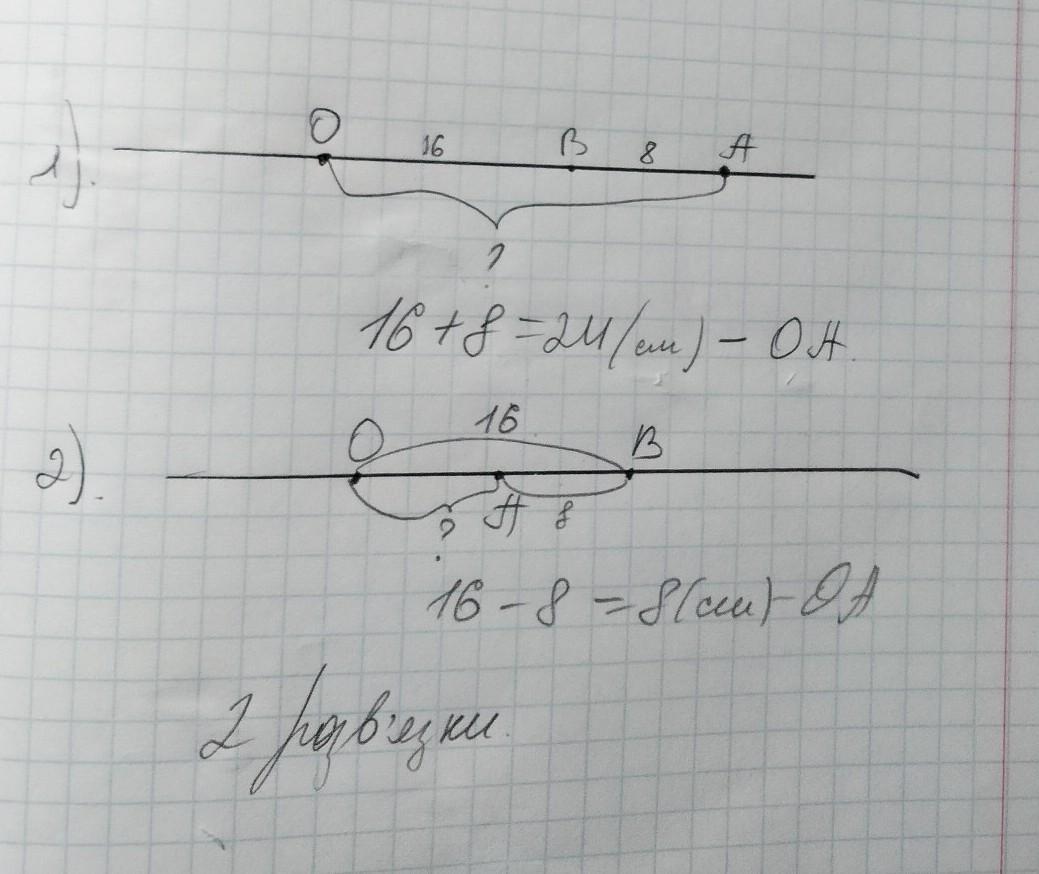 1).
O 16 B 8 A
?
16 + 8 = 24 (см) - ОА.
2).
16
O B
? A 8
16 - 8 = 8 (см) - ОА
2 розв'язки.